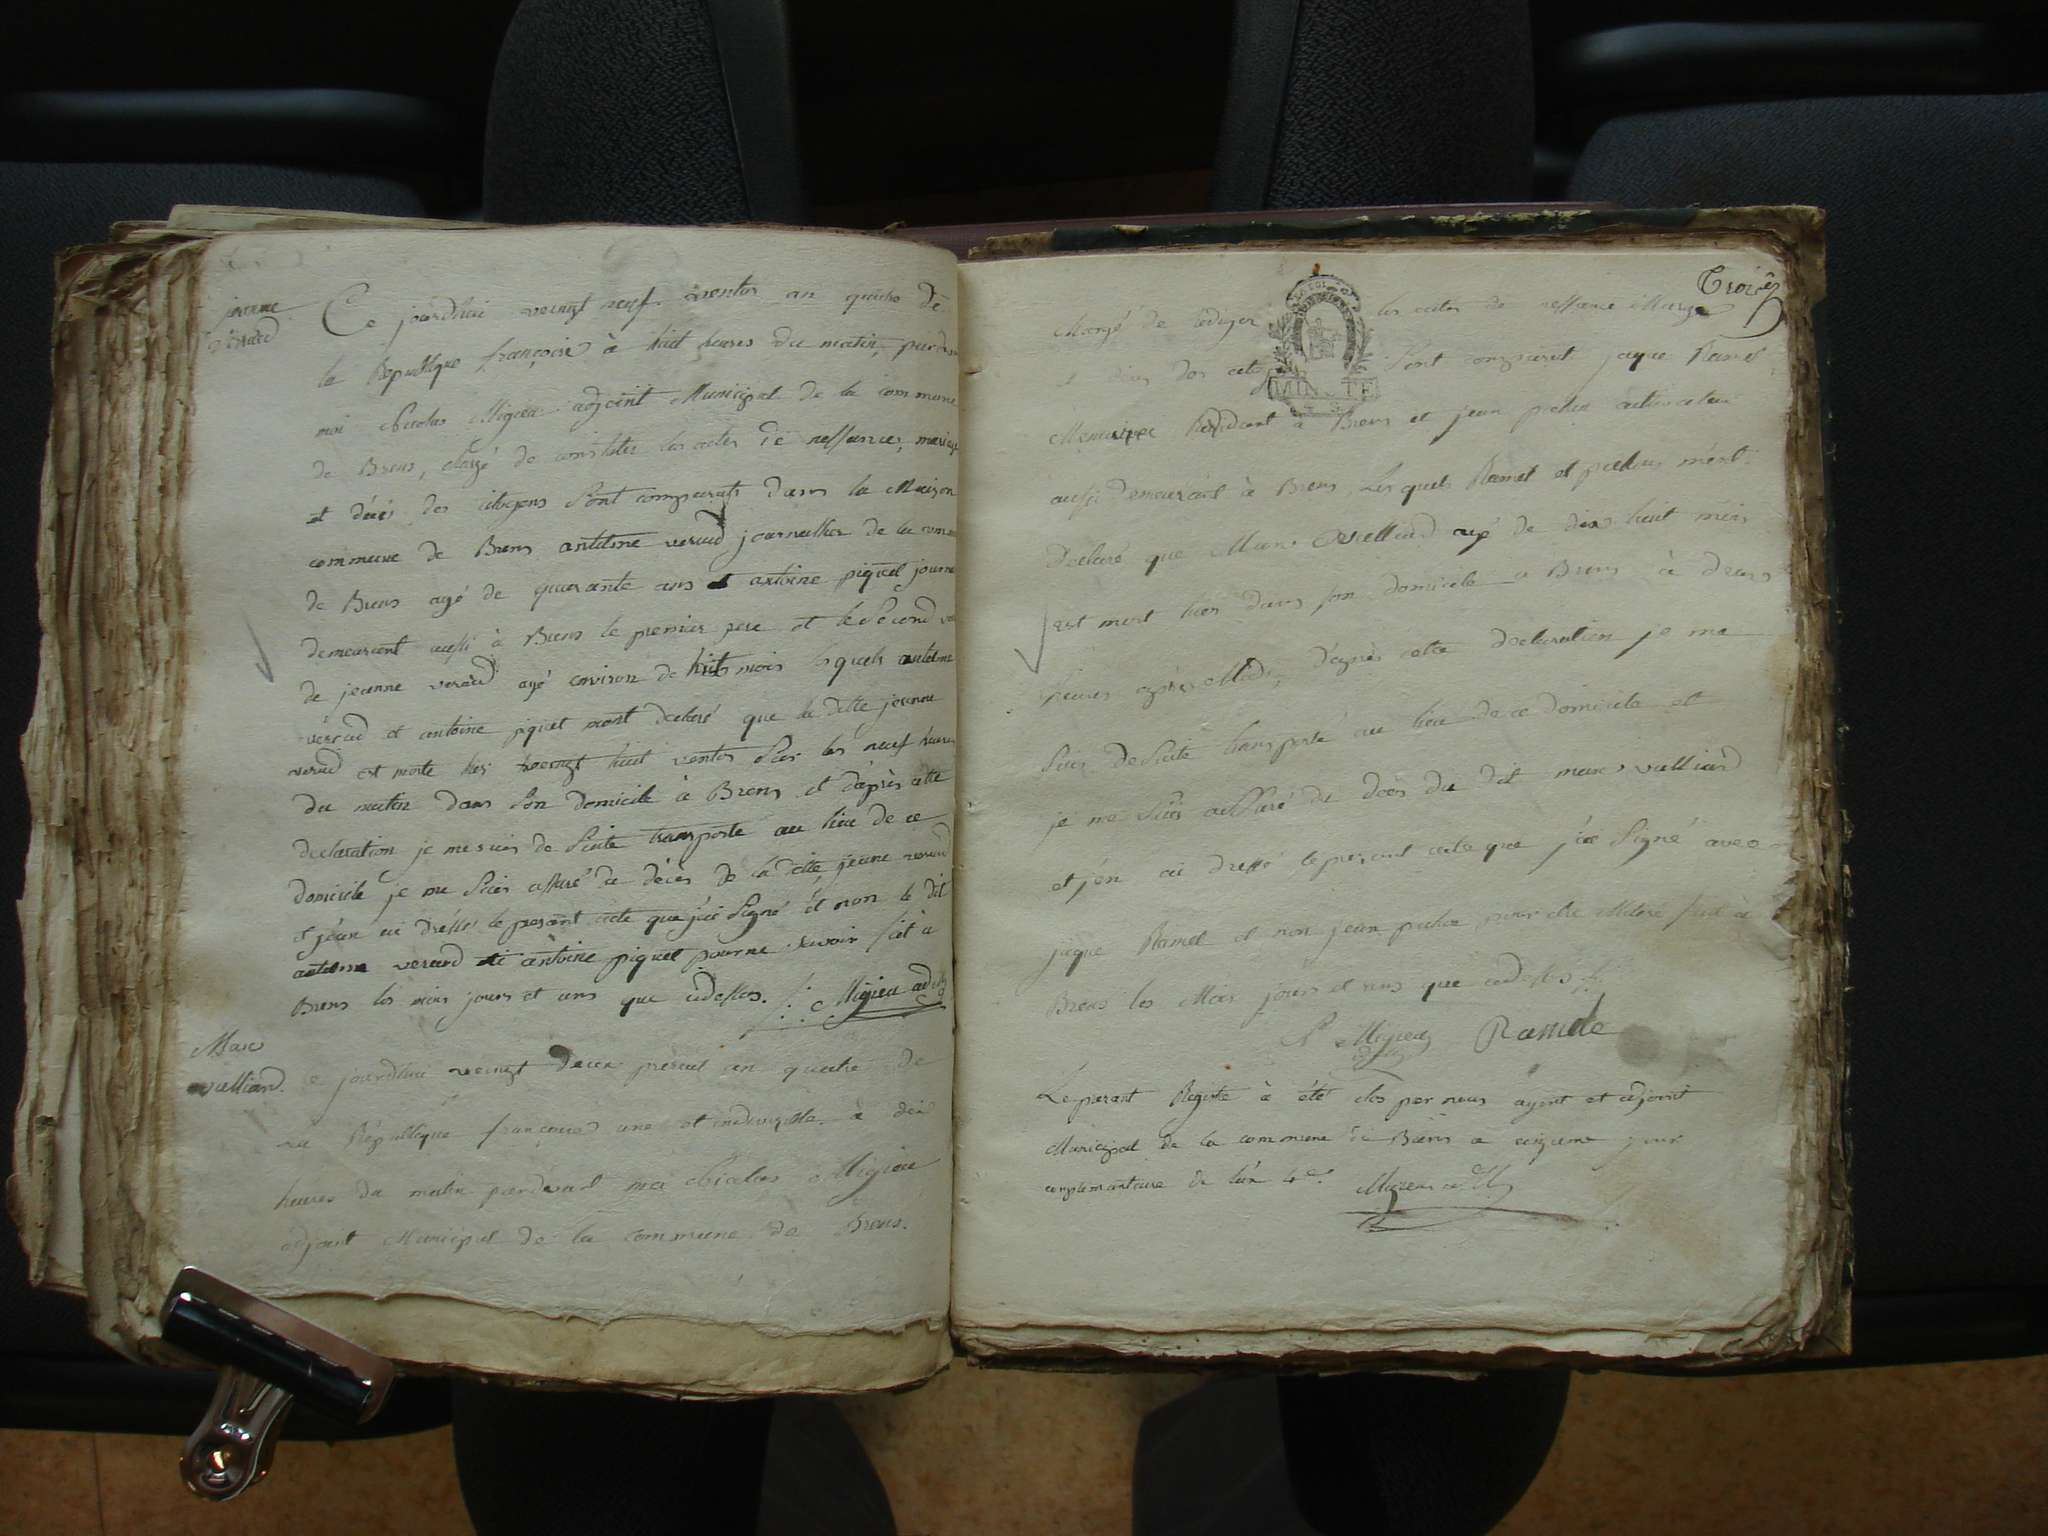 jeanne
verard
Ce jourdhui veingt neuf ventos an quatre de
la Republique françoise à huit heures du matin, pardevan
moi Nicolas Migieu adjoint Municipal de la commune
de Brens, chargé de constater les actes de nessances, mariage
et décés des citoyens sont comparuts dans la Maison
commune de Brens antelme verard journallier de la comm
de Brens agé de quarante ans et antoine piquet journa
demeurant aussi à Brens le premier pere et le second voi
de jeanne verard agé environ de huit mois lesquels antelme
verard et antoine piquet mont declaré que la ditte jeanne
verard est morte hier veingt huit ventos sur les neuf heures
du matin dans son domicile à Brens et daprès cette
declaration je me suis de suite transporté au lieu de ce
domicile je me suis assuré du décès de la ditte jeanne verard
et jean ai dréssé le present acte que j'ai signé et non le dit
antelme verard ni antoine piquet pour ne savoir fait à
Brens les mois jours et ans que cidessus. Migieu adj
Marc
vulliard
Ce jourdhui veingt deux prerial an quatre de
la République françoise une et indivisible à dix
heures du matin pardevant moi Nicolas Migieu
adjoint Municipal de la commune de Brens.
MINUTE
chargé de rediger les actes de nessance Mariage
et décès des citoy sont comparut jaque Ramel
Residant à Brens et jean pochon cultivateur
aussi demeurant à Brens Lesquels Ramel et pochon m'ont
declaré que Marc Vulliard agé de dix huit mois
est mort hier dans son domicile à Brens à deux
heures après Midi, d'après cette declaration je me
suis de suite transporté au lieu de ce domicile et
je me suis assuré du décès du dit marc vulliard
et j'en ai dressé le present acte que j'ai signé avec
jaque Ramel et non jean pochon pour être illiteré fait à
Brens les Mois jours et ans que cidessus
Migieu Ramele
Le present Registre à été clos par nous agent et adjoint
Municipal de la commune de Brens le jour
complementaire de l'an 4e. Migieu adj